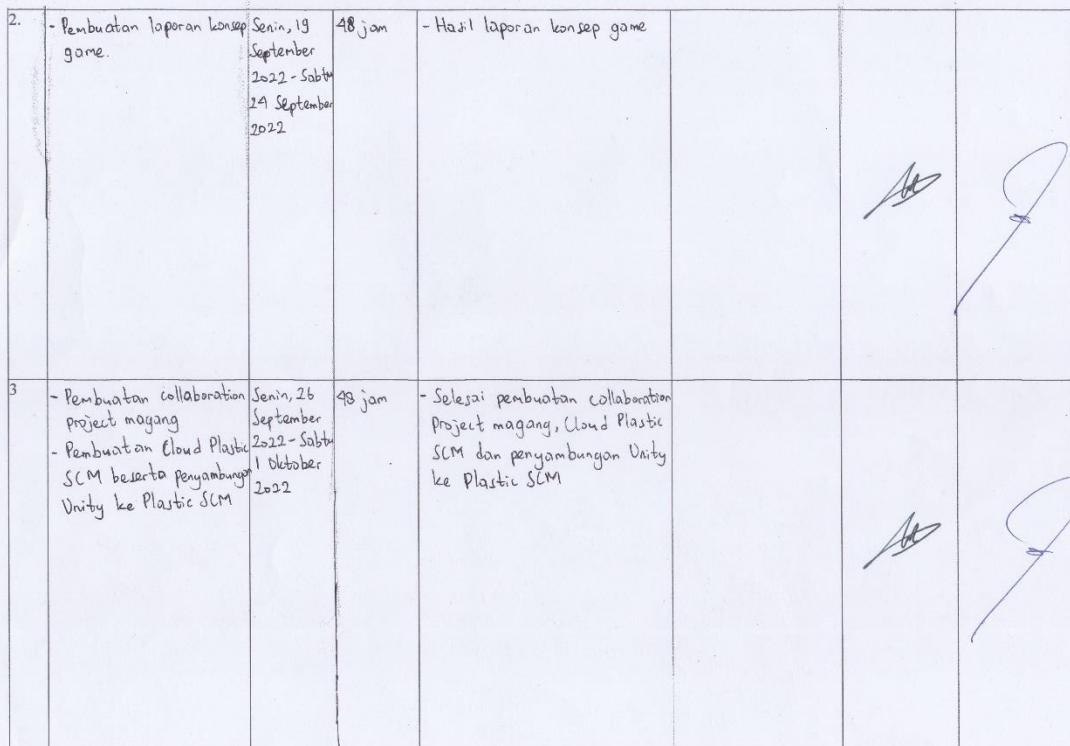 2.
- Pembuatan laporan konsep
game.
Senin, 19
September
2022 - Sabtu
24 September
2022
48 jam
- Hasil laporan konsep game
3
- Pembuatan collaboration
project magang
- Pembuatan Cloud Plastic
SCM beserta penyambungan
Unity ke Plastic SCM
Senin, 26
September
2022 - Sabtu
1 Oktober
2022
48 jam
- Selesai pembuatan collaboration
Project magang, Cloud Plastic
SCM dan penyambungan Unity
ke Plastic SCM